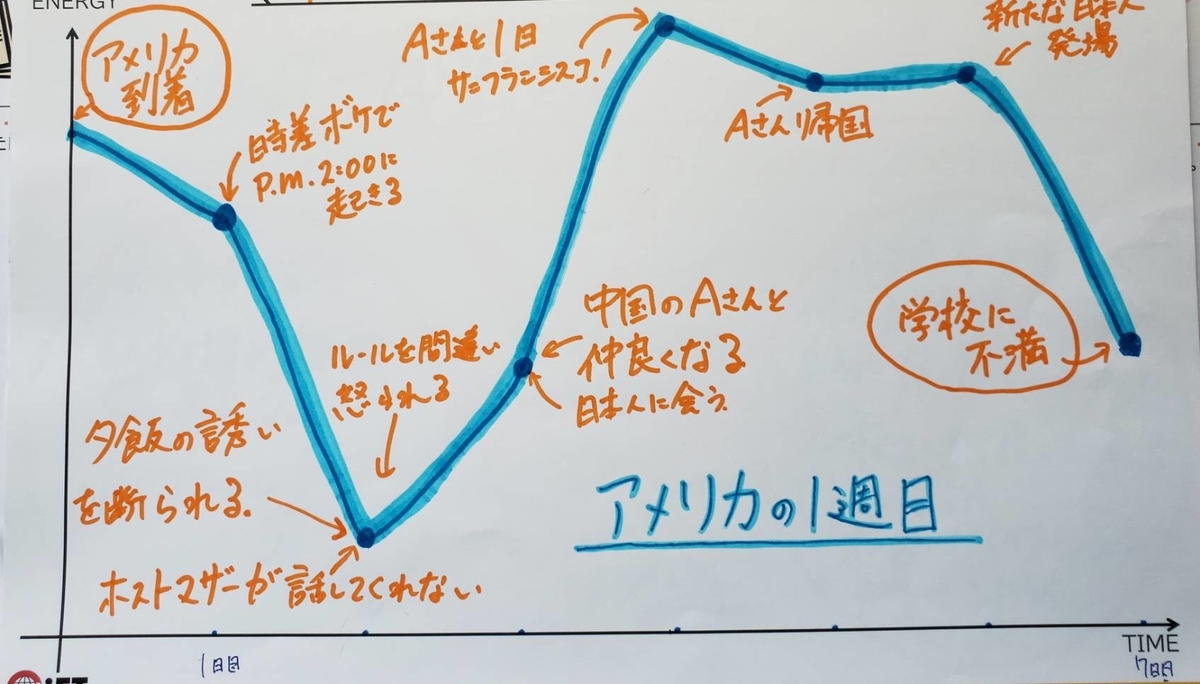 ENERGY
アメリカ
到着
時差ボケで
P.M.2:00に
起きる
Aさんと1日
サンフランシスコ!
Aさん帰国
新たな日本人
発場
ルールを間違い
怒られる
夕飯の誘い
を断られる。
ホストマザーが話してくれない
中国のAさんと
仲良くなる
日本人に会う。
学校に
不満
アメリカの1週目
TIME
1日目
7日目